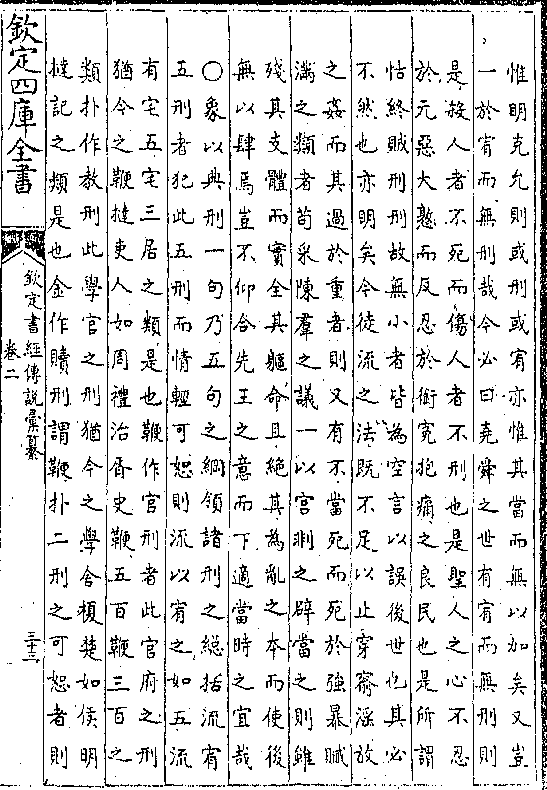 惟明克允則或刑或宥亦惟其當而無以加矣又豈
一於宥而無刑哉今必曰堯舜之世有宥而無刑則
是殺人者不死而傷人者不刑也是聖人之心不忍
於元惡大憝而反忍於銜寃抱痛之良民也是所謂
怙終賊刑刑故無小者皆為空言以誤後世也其必
不然也亦明矣今徒流之法既不足以止穿窬淫放
之姦而其過於重者則又有不當死而死於強暴贓
滿之類者苟采陳羣之議一以宮剕之辟當之則雖
殘其支體而實全其軀命且絕其為亂之本而使後
無以肆焉豈不仰合先王之意而下適當時之宜哉
○象以典刑一句乃五句之綱領諸刑之緫括流宥
五刑者犯此五刑而情輕可恕則流以宥之如五流
有宅五宅三居之類是也鞭作官刑者此官府之刑
猶今之鞭撻吏人如周禮治胥史鞭五百鞭三百之
類扑作教刑此學官之刑猶今之學舍榎楚如侯明
撻記之類是也金作贖刑謂鞭扑二刑之可恕者則
欽定四庫全書
欽定書經傳說彙纂
卷二
三十三